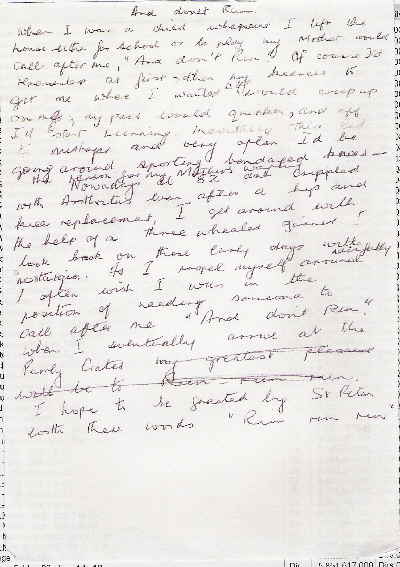 And don't Run.
When I was a child whenever I left the
house either for school or to play my Mother would
call after me "And don't Run". Of course I'd
remember at first - then my keenness to
get me where I wanted to get would creep up
on me, my pace would quicken, and off
I'd start running. Inevitably there'd
mishaps and very often I'd be
going around sporting bandaged knees -
the reason for my Mother's warning
Nowadays at 82 and crippled
with Arthritis even after a hip and
knee replacement, I get around with
the help of a three wheeled
look back on those early days with
nostalgia. As I propel myself around carefully
I often wish I was in the
position of needing someone to
call after me "And don't Run."
When I eventually arrive at the
Pearly Gates my greatest pleasure
will be to Run run run.
I hope to be greated by St Peter
with these words "Run run run"